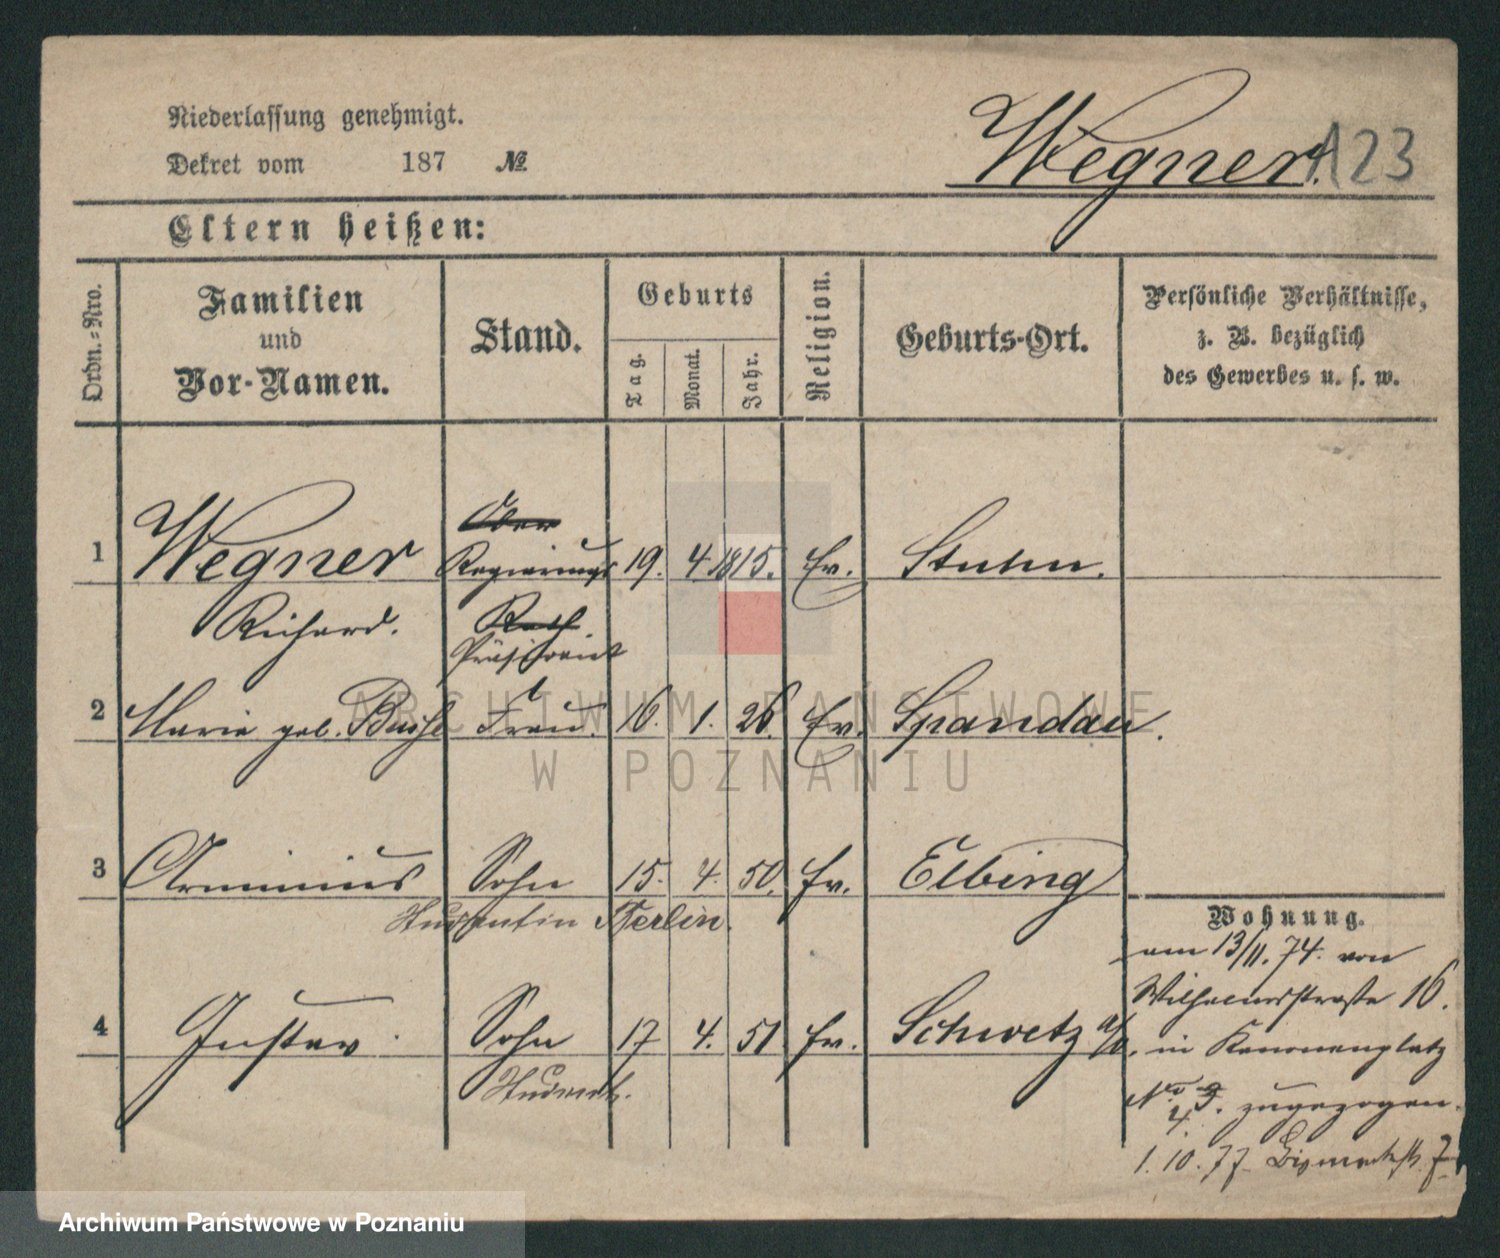 Niederlassung genehmigt.
Dekret vom 187 №
Wegner. 123
Eltern heißen:
Ordn.-Nro.
Familien und Vor-Namen.
Stand.
Geburts
Tag. Monat. Jahr.
Religion.
Geburts-Ort.
Persönliche Verhältnisse,
z. B. bezüglich
des Gewerbes u. s. w.
Ober
1 Wegner Regierungs 19. 4. 1815. Ev. Stuhm.
Richard. Rath
Präsident
2 Marie geb. Frau. 16 1. 26. Ev. Spandau.
3 Arminius Sohn 15. 4. 50. Ev. Elbing
Student in Berlin.
4 Gustav Sohn 17 4. 51 Ev. Schwetz
Student.
Wohnung.
am 13/11. 74. von
Wilhelmsstraße 16.
in Kanonenplatz
No 3. zugezogen.
4.
1. 10. 77 Bismarckstr. 7
ARCHIWUM PAŃSTWOWE
W POZNANIU
Archiwum Państwowe w Poznaniu